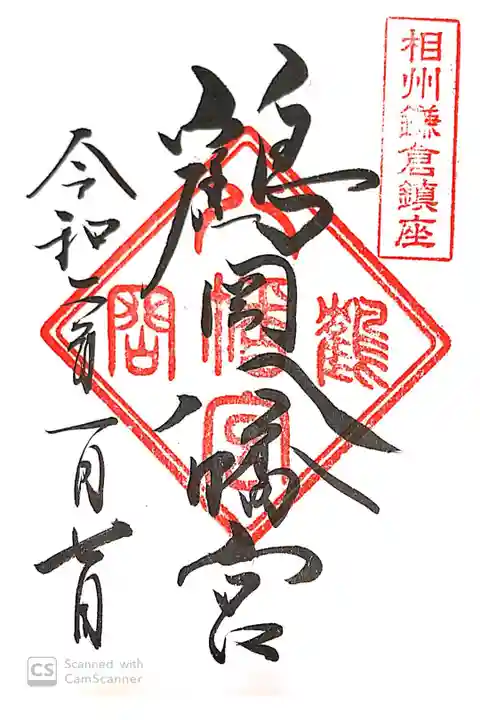 相州鎌倉鎮座
鶴岡八幡宮
令和二年一月七日
CS Scanned with
CamScanner